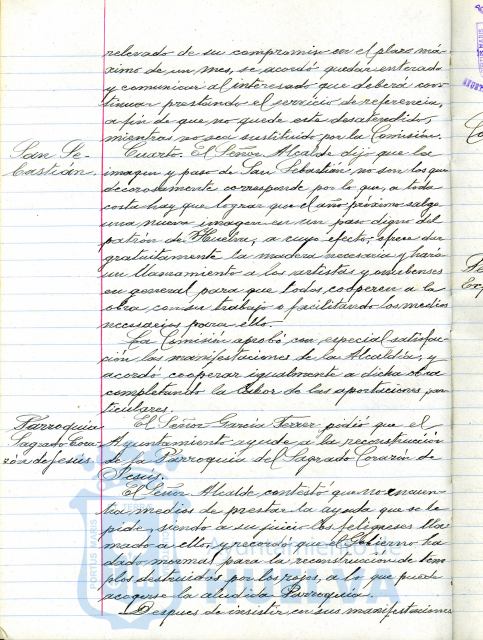 relevado de su compromiso en el plazo má-
ximo de un mes, se acordó quedar enterada
y comunicar al interesado que deberá con-
tinuar prestando el servicio de referencia,
a fin de que no quede este desatendido,
mientras no sea sustituido por la Comisión.
San Se-
bastián.
Cuarto. El Señor Alcalde dijo que la
imagen y paso de San Sebastián, no son los que
decorosamente corresponde por lo que, a toda
costa hay que lograr que el año próximo salga
una nueva imagen en un paso digno del
patrón de Huelva, a cuyo efecto, ofrece dar
gratuitamente la madera necesaria y hará
un llamamiento a los artistas y onubenses
en general para que todos cooperen a la
obra con su trabajo o facilitando los medios
necesarios para ello.
La Comisión aprobó con especial satisfac-
ción las manifestaciones de la Alcaldía, y
acordó cooperar igualmente a dicha obra
completando la labor de las aportaciones par-
ticulares.
Parroquia
Sagrado Cora-
zón de Jesús.
El Señor García Ferrer pidió que el
Ayuntamiento ayude a la reconstrucción
de la Parroquia del Sagrado Corazón de
Jesús.
El Señor Alcalde contestó que no encuen-
tra medios de prestar la ayuda que se le
pide, siendo a su juicio los feligreses lla-
mado a ello, y recordó que el Gobierno ha
dado normas para la reconstrucción de tem-
plos destruidos por los rojos, a lo que puede
acogerse la aludida Parroquia.
Despues de insistir en sus manifestaciones
PORTUS MARIS
Ayuntamiento de
HUELVA